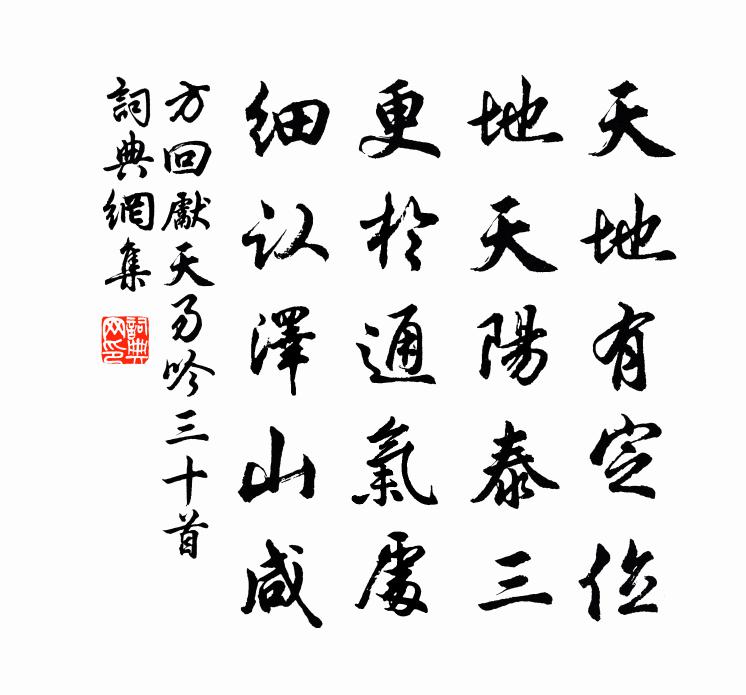 天地有定位
地天陽泰三
更於通氣處
細認澤山咸
方回獻天易吟三十首
詞典網集
詞典網印